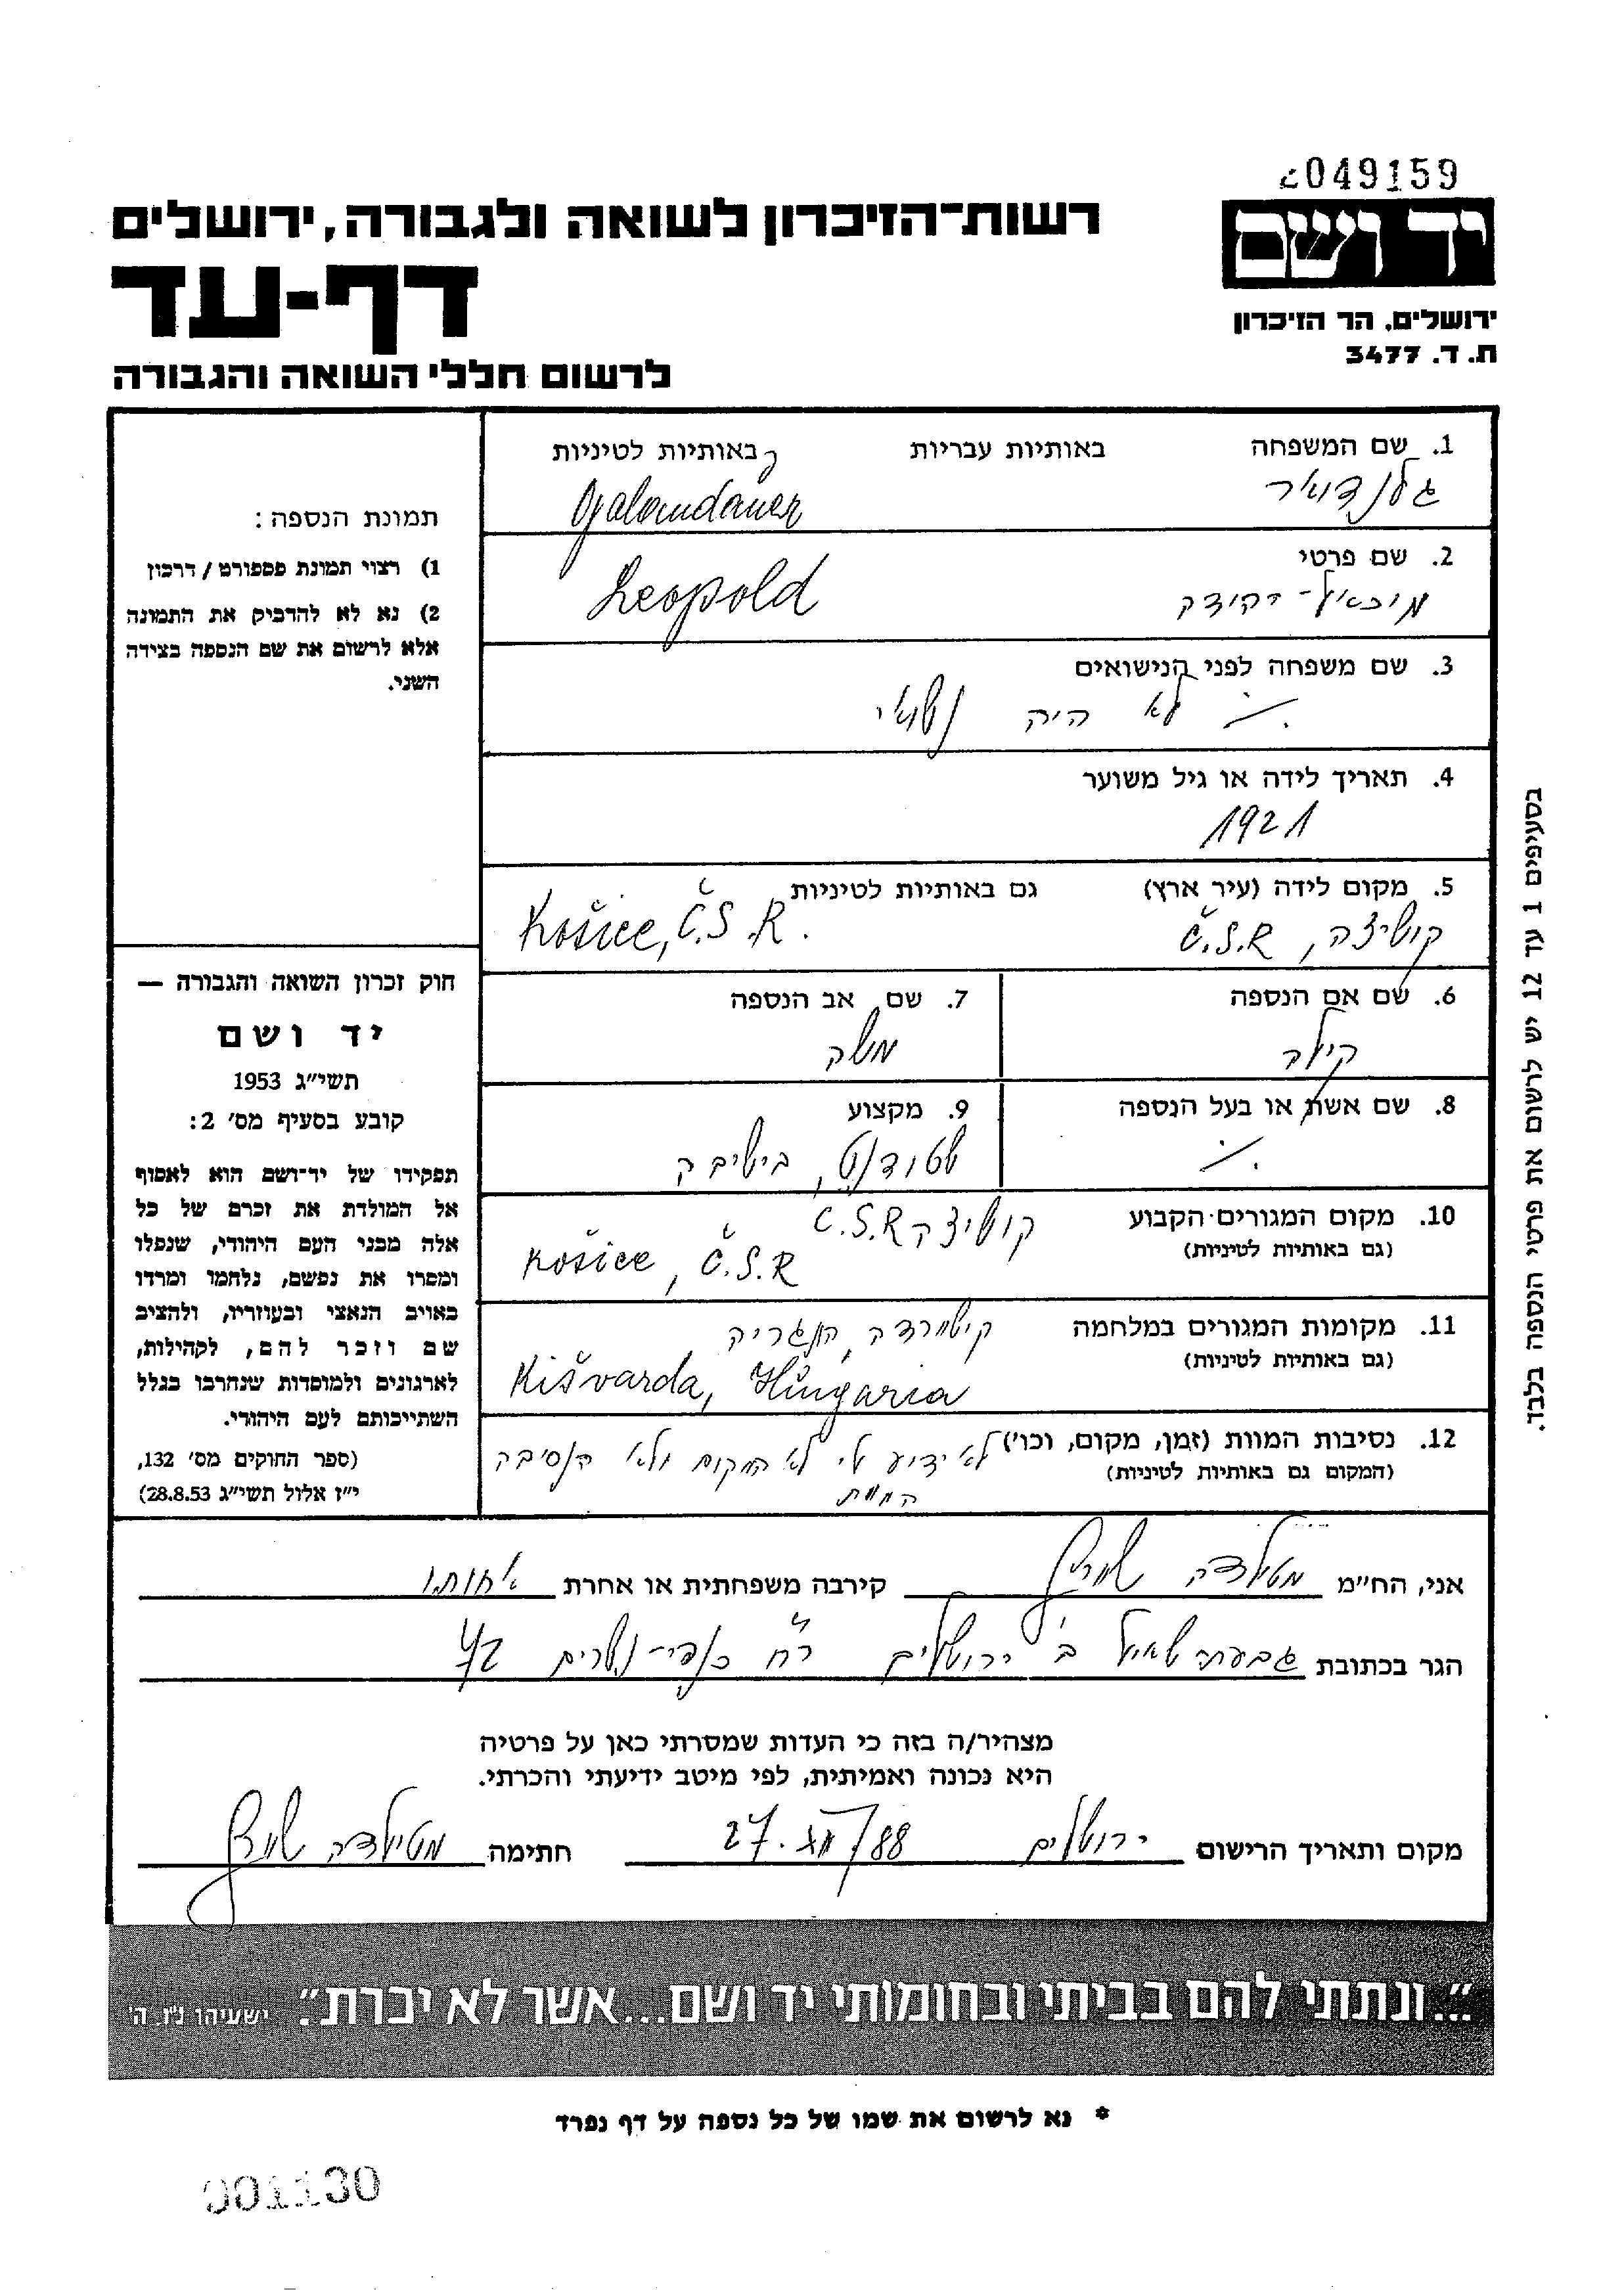 2049159
יד ושם
ירושלים. הר הזיכרון
ת. ד. 3477
רשות-הזיכרון לשואה ולגבורה, ירושלים
דף-עד
לרשום חללי השואה והגבורה
1. שם המשפחה באותיות עבריות באותיות לטיניות
Galandauer
2. שם פרטי
Leopold
3. שם משפחה לפני הנישואים
./. לא היה נשוי
4. תאריך לידה או גיל משוער
1921
5. מקום לידה (עיר ארץ) גם באותיות לטיניות
קושיצה, Č.S.R Košice, Č.S.R.
6. שם אם הנספה
7. שם אב הנספה
משה
8. שם אשת או בעל הנספה
./.
9. מקצוע
סטודנט, בישיבה
10. מקום המגורים הקבוע קושיצה Č.S.R
(גם באותיות לטיניות) Košice, Č.S.R
11. מקומות המגורים במלחמה קישוורדה, הונגריה
(גם באותיות לטיניות) Kišvarda, Hungaria
12. נסיבות המוות (זמן, מקום, וכו') לא ידוע לי לא המקום ולא הנסיבה
(המקום גם באותיות לטיניות) המוות
תמונת הנספה:
1) רצוי תמונת פספורט / דרכון
2) נא לא להדביק את התמונה
אלא לרשום את שם הנספה בצידה
השני.
חוק זכרון השואה והגבורה —
יד ושם
תשי"ג 1953
קובע בסעיף מס' 2:
תפקידו של יד־ושם הוא לאסוף
אל המולדת את זכרם של כל
אלה מבני העם היהודי, שנפלו
ומסרו את נפשם, נלחמו ומרדו
באויב הנאצי ובעוזריו, ולהציב
שם וזכר להם, לקהילות,
לארגונים ולמוסדות שנחרבו בגלל
השתייכותם לעם היהודי.
(ספר החוקים מס' 132,
י"ז אלול תשי"ג 28.8.53)
בסעיפים 1 עד 12 יש לרשום את פרטי הנספה בלבד.
אני, הח"מ מטילדה שורץ קירבה משפחתית או אחרת אחותו
הגר בכתובת גבעת שאול ב' ירושלים רח' כנפי-נשרים
מצהיר/ה בזה כי העדות שמסרתי כאן על פרטיה
היא נכונה ואמיתית, לפי מיטב ידיעתי והכרתי.
מקום ותאריך הרישום ירושלים חתימה מטילדה שורץ
"...ונתתי להם בביתי ובחומותי יד ושם...אשר לא יכרת". ישעיהו נ"ו. ה'
* נא לרשום את שמו של כל נספה על דף נפרד
001130